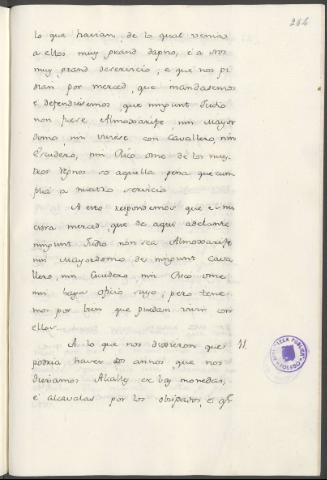 264
lo que havian, de lo qual vernia
a ellos muy grand dapno, e a nos
muy grand deservicio, e que nos pi
dian por merced, que mandasemos
e defendiesemos que ningunt Judio
non fuese Almoxarife, nin Mayor
domo, nin viviese con Cavallero, nin
Escudero, nin Rico ome de los nues
tros Regnos so aquella pena que cum
plia a nuestro servicio
A esto respondemos que es nu
estra merced, que de aqui adelante
ningunt Judio non sea Almoxarife
nin Mayordomo de ningunt Cava
llero, nin Escudero, nin Rico ome
nin haya oficio suyo; pero tene
mos por bien que puedan vivir con
ellos.
A lo que nos dixieron que 11
podria haver dos annos, que nos
dieriamos Alcalles en las monedas,
e alcavalas por los obispados, e